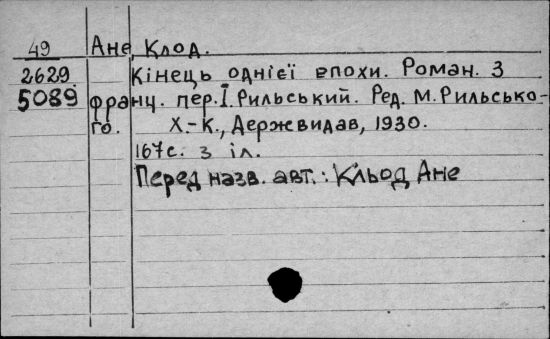 49 Ане, Клод.
2629 Кінець однієї епохи. Роман. З
5089 франц. пер. І. Рильський. Ред. М. Рильсько-
го. Х.-К., Держвидав, 1930.
167с. з іл.
Перед назв. авт.: Кльод Ане